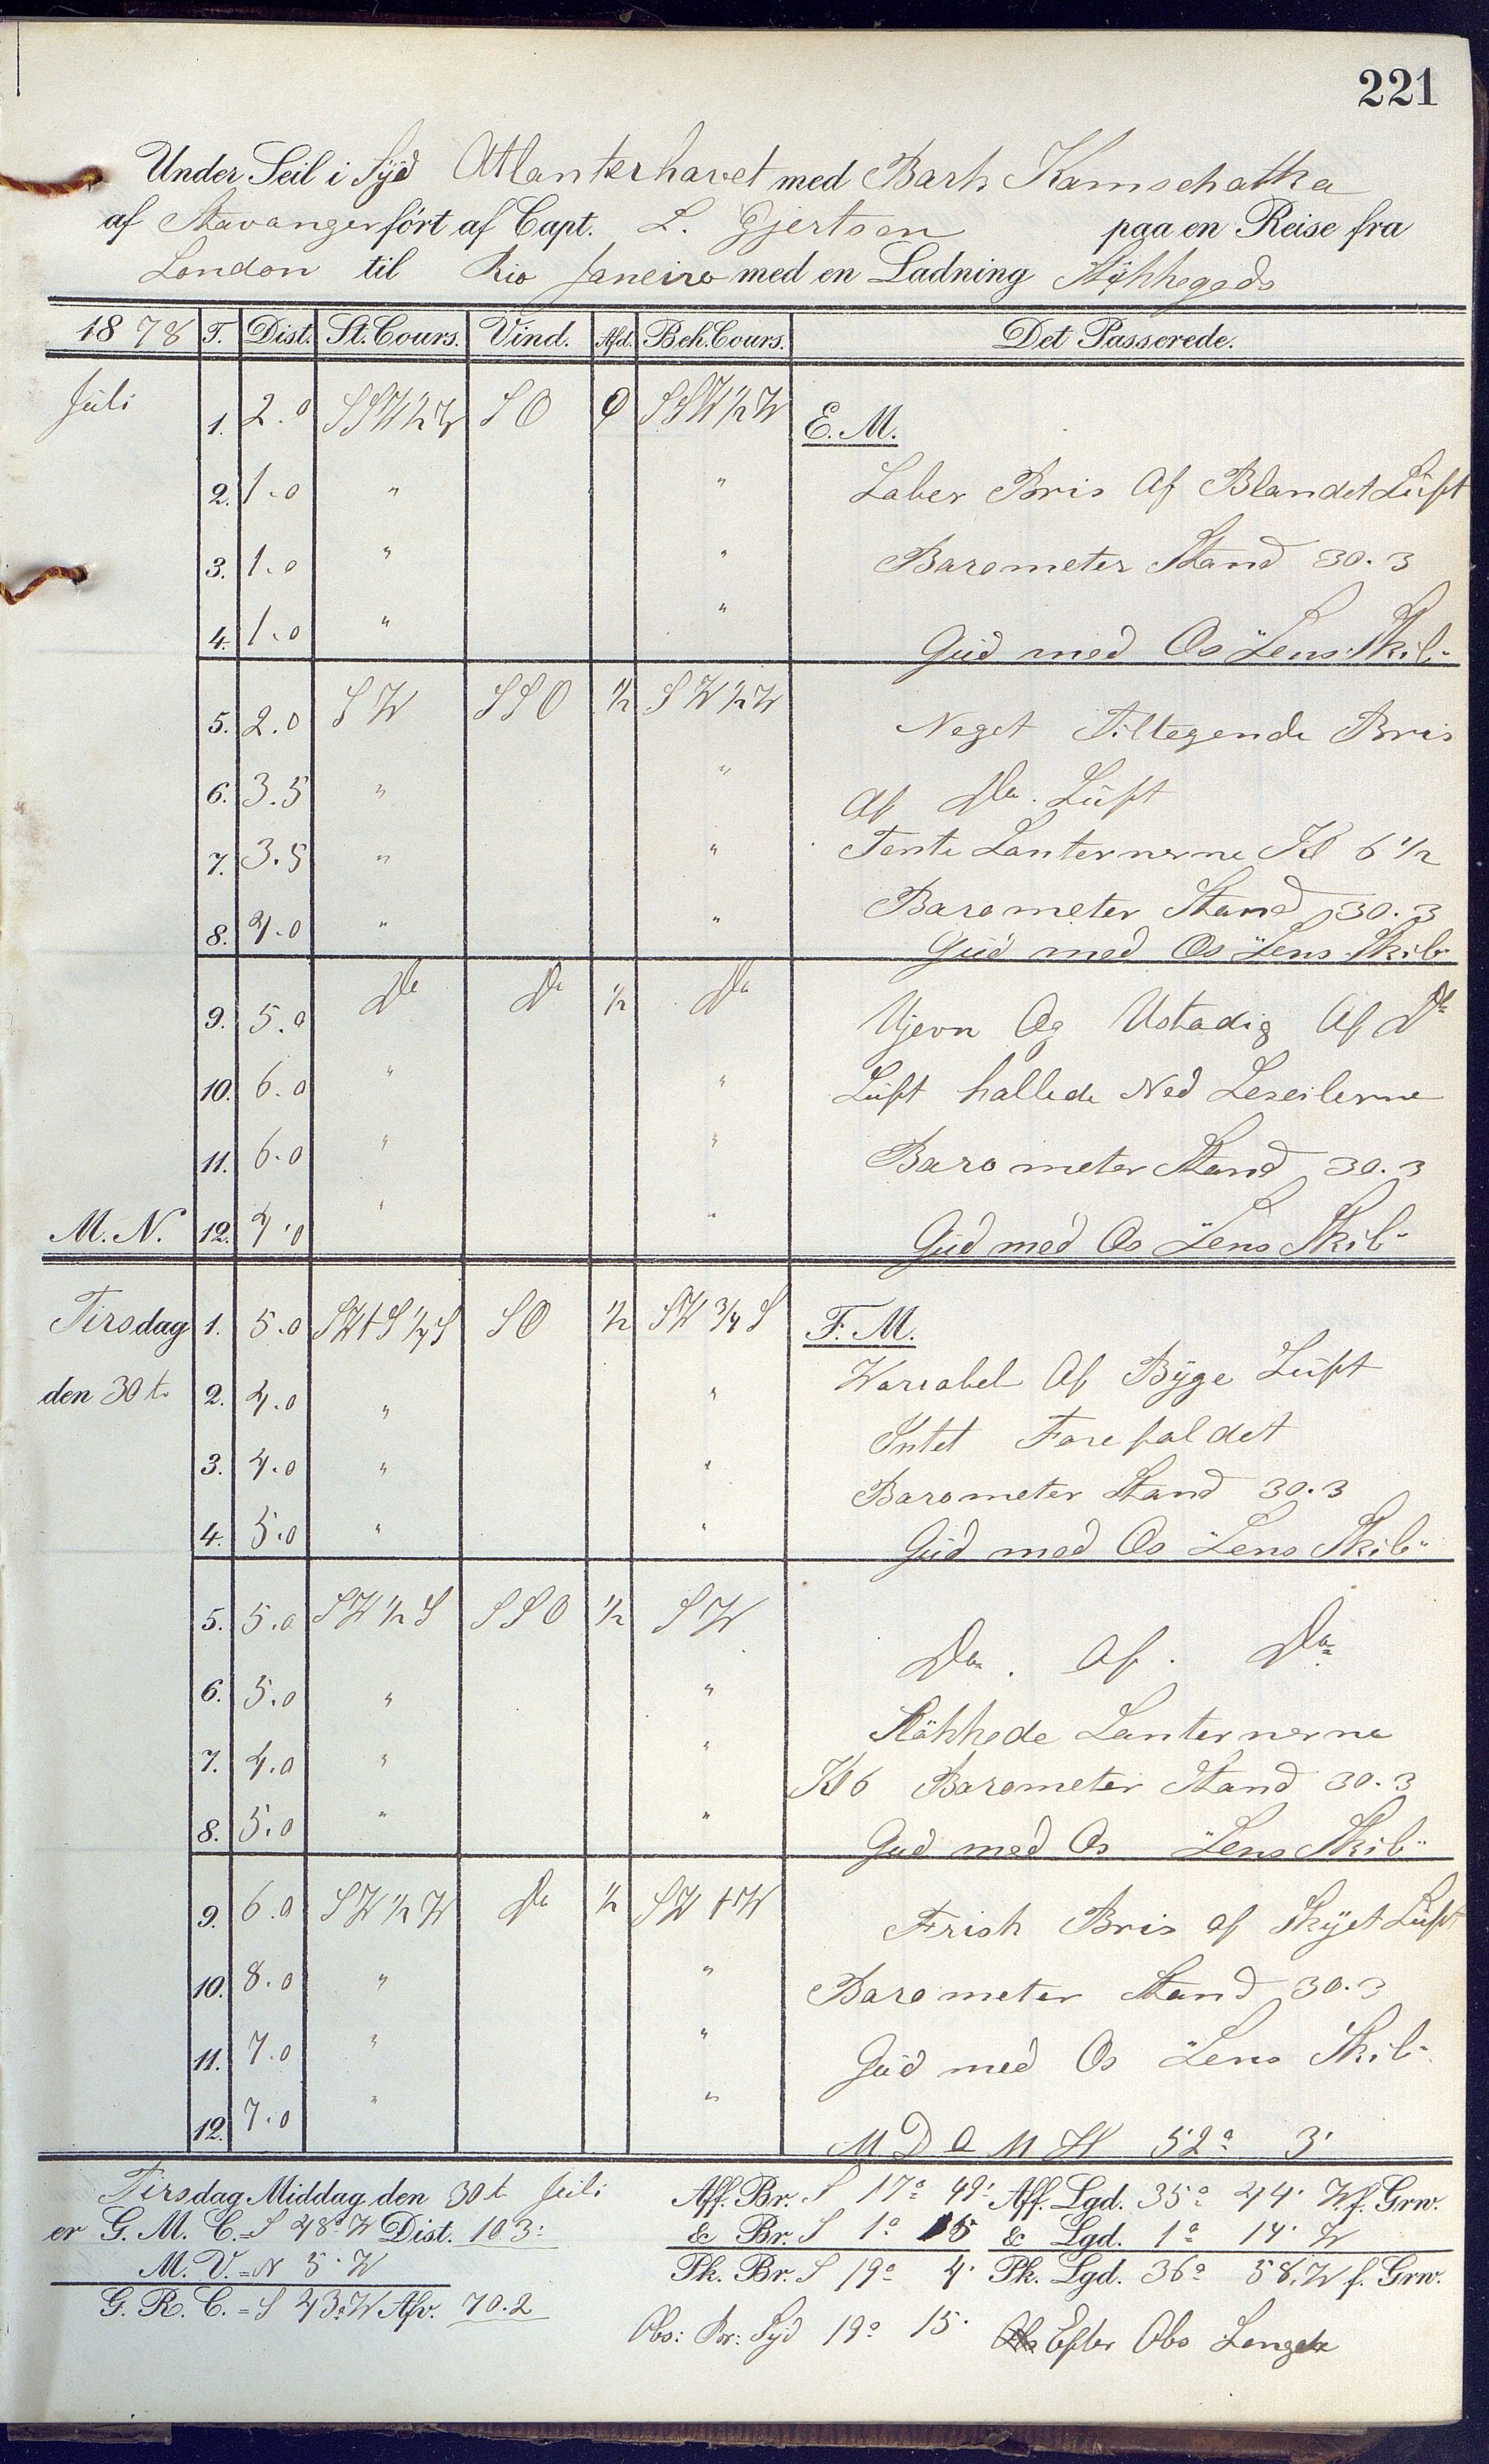 221
Under Seil i Syd Atlanterhavet med Bark Kamschatka
af Stavanger fört af Capt. L. Gjertsen paa en Reise fra
London til Rio Janeiro med en Ladning Stÿkkegods
1878 T. Dist. St. Cours. Vind. Afd. Beh. Cours. Det Passerede.
Juli 1. 2.0 SSW½W SO 0 SSW½W E.M.
2. 1.0 " " Laber Bris Af Blandet Lüft
3. 1.0 " " Barometer Stand 30.3
4. 1.0 " " Güd med Os "Lens Skib"
5. 2.0 SW SSO ½ SW½W Noget Tiltegende Bris
6. 3.5 " " Af Do. Lüft
7. 3.5 " " Tente Lanternerne Kl 6½
8. 4.0 " " Barometer Stand 30.3
Güd med Os "Lens Skib"
9. 5.0 Do Do ½ Do Ujevn Og Ustadig Af Do
10. 6.0 " " Lüft hallede Ned Leseilerne
11. 6.0 " " Barometer Stand 30.3
M.N. 12. 4.0 " " Güd med Os "Lens Skib"
Tirsdag 1. 5.0 SWtS¼S SO ½ SW¾S F.M.
den 30t. 2. 4.0 " " Wariabel Af Bÿge Lüft
3. 4.0 " " Intet Forefaldet
Barometer Stand 30.3
4. 5.0 " " Güd med Os "Lens Skib"
5. 5.0 SW½S SSO ½ SW Do. Af. Do
6. 5.0 " "
Slökkede Lanternerne
7. 4.0 " " Kl 6 Barometer Stand 30.3
8. 5.0 " " Gud med Os "Lens Skib"
9. 6.0 SW½W Do ½ SWtW Frisk Bris af Skÿet Lüft
10. 8.0 " " Barometer Stand 30.3
11. 7.0 " " Güd med Os "Lens Skib"
12. 7.0 " " M D O M H 52° 3'
Tirsdag Middag den 30t Juli Aff. Br. S 17° 49' Aff. Lgd. 35° 44' W. f. Grw.
er G. M. C. = S 48° W Dist. 103' & Br. S 1° 15 & Lgd. 1° 14' W
M. V. = N 5° W Pk. Br. S 19° 4' Pk. Lgd. 36° 58' W f. Grw.
G. R. C. = S 43° W Afv. 70.2
Obs: Br: Syd 19° 15' Efter Obs Lengde